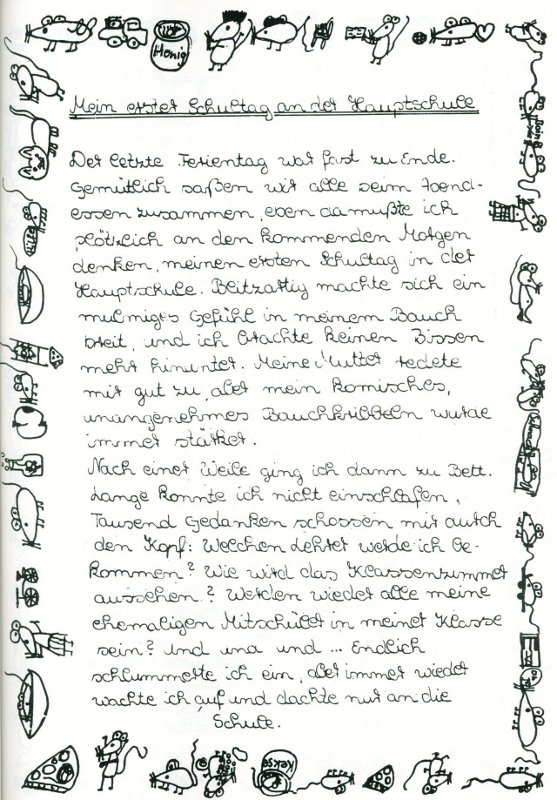 Honig
Mein erster Schultag an der Hauptschule
Der letzte Ferientag war fast zu Ende.
Gemütlich saßen wir alle beim Abend-
essen zusammen, eben da mußte ich
plötzlich an den kommenden Morgen
denken, meinen ersten Schultag in der
Hauptschule. Blitzartig machte sich ein
mulmiges Gefühl in meinem Bauch
breit, und ich brachte keinen Bissen
mehr hinunter. Meine Mutter redete
mir gut zu, aber mein komisches,
unangenehmes Bauchkribbeln wurde
immer stärker.
Nach einer Weile ging ich dann zu Bett.
Lange konnte ich nicht einschlafen,
Tausend Gedanken schossen mir durch
den Kopf: Welchen Lehrer werde ich be-
kommen? Wie wird das Klassenzimmer
aussehen? Werden wieder alle meine
ehemaligen Mitschüler in meiner Klasse
sein? Und und und ... Endlich
schlummerte ich ein, aber immer wieder
wachte ich auf und dachte nur an die
Schule.
Kekse